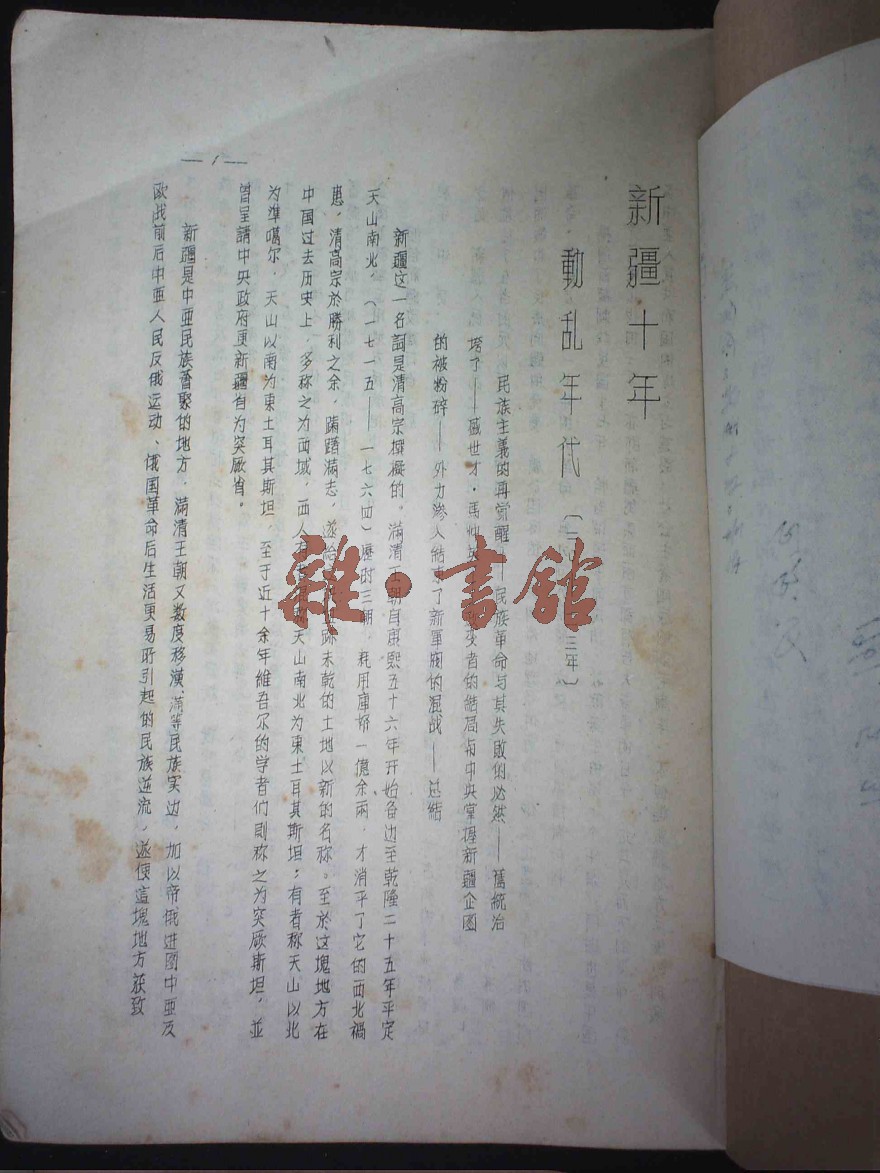 新疆十年
動乱年代（一九三 三年）
民族主義的再觉醒——民族革命与其失败的必然——舊統治
垮了——盛世才·馬仲英 变者的結局与中央掌握新疆企图
的被粉碎——外力滲入結束了新軍阀的混战——总結
新疆这一名詞是清高宗撰擬的。滿清王朝自康熙五十六年开始备边至乾隆二十五年平定
天山南北，（一七一五——一七六四）歷时三朝，耗用庫帑一億余兩，才消平了它的西北禍
患，清高宗於勝利之余，躊躇滿志，遂給 跡未乾的土地以新的名称。至於这塊地方在
中国过去历史上，多称之为西域，西人有 称天山南北为東土耳其斯坦；有者称天山以北
为準噶尔，天山以南为東土耳其斯坦，至于近十余年維吾尔的学者们則称之为突厥斯坦，並
曾呈請中央政府更新疆省为突厥省。
新疆是中亜民族薈聚的地方，滿清王朝又数度移漢、滿等民族实边，加以帝俄进图中亜及
欧战前后中亜人民反俄运动、俄国革命后生活更易所引起的民族逆流，遂使這塊地方获致
— 1 —
雜·書館